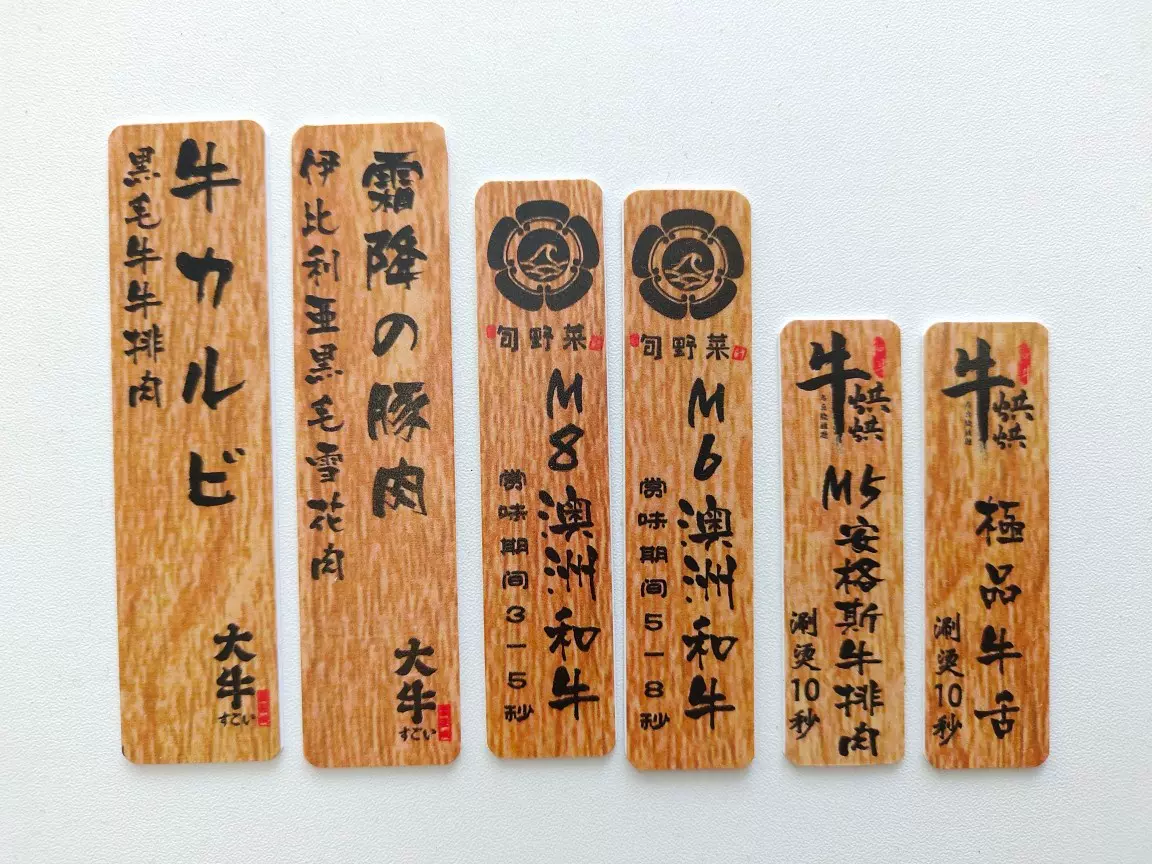 牛カルビ
黒毛牛牛排肉
大牛
すごい
霜降の豚肉
伊比利亜黒毛雪花肉
大牛
すごい
旬野菜
M8澳洲和牛
赏味期间3-5秒
旬野菜
M6澳洲和牛
赏味期间5-8秒
牛烘烘
M5安格斯牛排肉
涮烫10秒
牛烘烘
極品牛舌
涮烫10秒